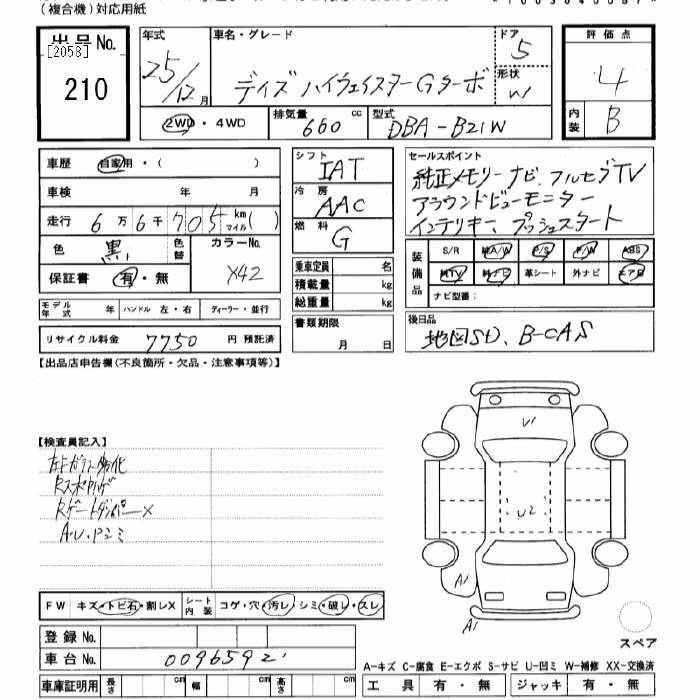 (複合機)対応用紙
出品No.
[2053]
210
年式
25/12月
車名・グレード
デイズ ハイウェイスターGターボ
ドア
5
形状
W
評価点
4
内装
B
2WD・4WD
排気量 660 cc
型式 DBA-B21W
車歴 自家用・( )
車検 年 月
走行 6万6千705 km マイル( )
色 黒 色替 カラーNo. X42
保証書 有・無
モデル年式 年 ハンドル 左・右 ディーラー・並行
リサイクル料金 7750 円 預託済
シフト IAT
冷房 AAC
燃料 G
乗車定員 名
積載量 kg
総重量 kg
書類期限
月 日
セールスポイント
純正メモリーナビ、フルセグTV
アラウンドビューモニター
インテリキー、プッシュスタート
装備品
S/R 純A/W P/S P/W ABS
純TV 純ナビ 革シート 外ナビ エアB
ナビ型番:
後日品
地図SD、B-CAS
【出品店申告欄(不良箇所・欠品・注意事項等)】
【検査員記入】
A・U・Pシミ
U1
U2
A1
A1
FW キズ・トビ石・割レX シート内装 コゲ・穴・汚レ・シミ・破レ・スレ
登録No.
車台No. 0096592
車庫証明用 長さ cm 幅 cm 高さ cm
スペア
A-キズ C-腐食 E-エクボ S-サビ U-凹ミ W-補修 XX-交換済
工具 有・無 ジャッキ 有・無